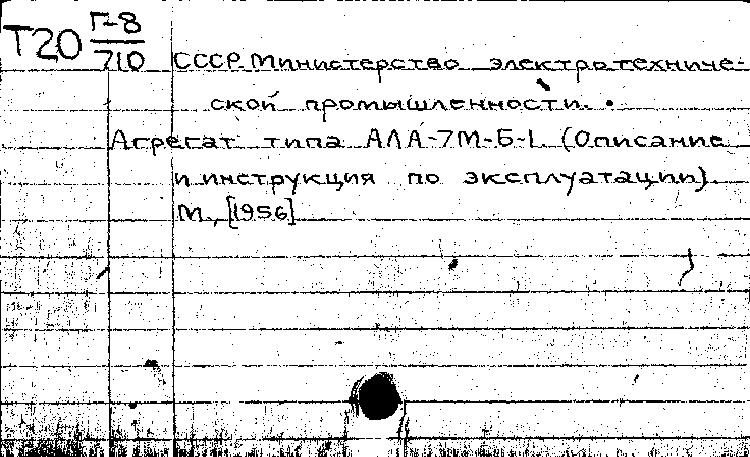 Т20 Г-8
710
СССР. Министерство электротехниче-
ской промышленности.
Агрегат типа АЛА-7М-Б-1. (Описание
и инструкция по эксплуатации).
М., [1956]